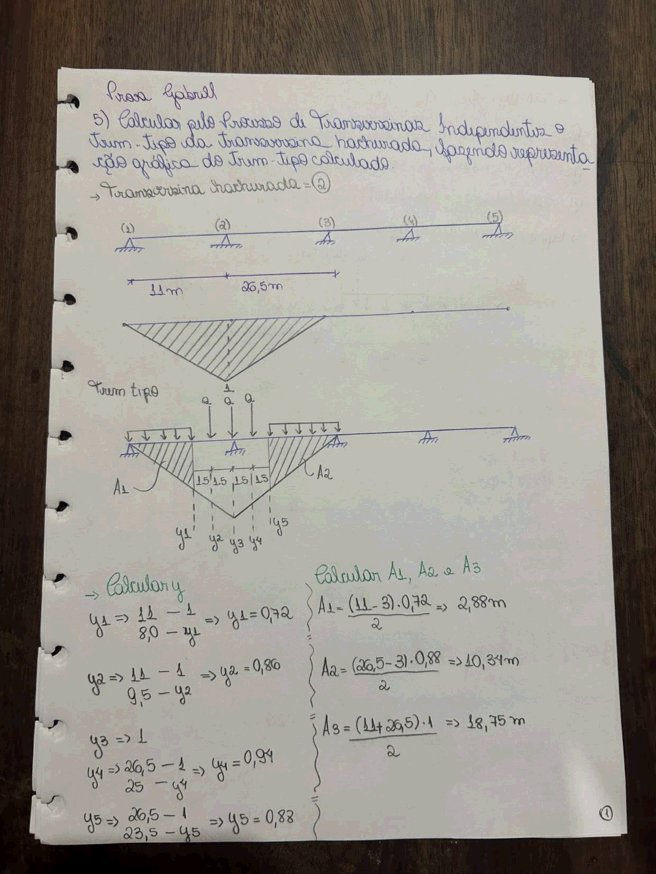 Prova Gabriel
5) Calcular pelo Processo de Transversinas Independentes o
trem-tipo da transversina hachurada, fazendo representa
ção gráfica do trem-tipo calculado.
→ Transversina hachurada = (2)
(1) (2) (3) (4) (5)
11m 26,5m
1
Trem tipo
Q Q Q
A1 1.5 1.5 1.5 1.5 A2
y1 y2 y3 y4 y5
→ Calcular y
y1 => 11 – 1 => y1 = 0,72
8,0 – y1
y2 => 11 – 1 => y2 = 0,86
9,5 – y2
y3 => 1
y4 => 26,5 – 1 => y4 = 0,94
25 – y4
y5 => 26,5 – 1 => y5 = 0,88
23,5 – y5
Calcular A1, A2 e A3
A1 = (11-3).0,72 => 2,88m
2
A2 = (26,5-3).0,88 => 10,34m
2
A3 = (11+26,5).1 => 18,75m
2
1